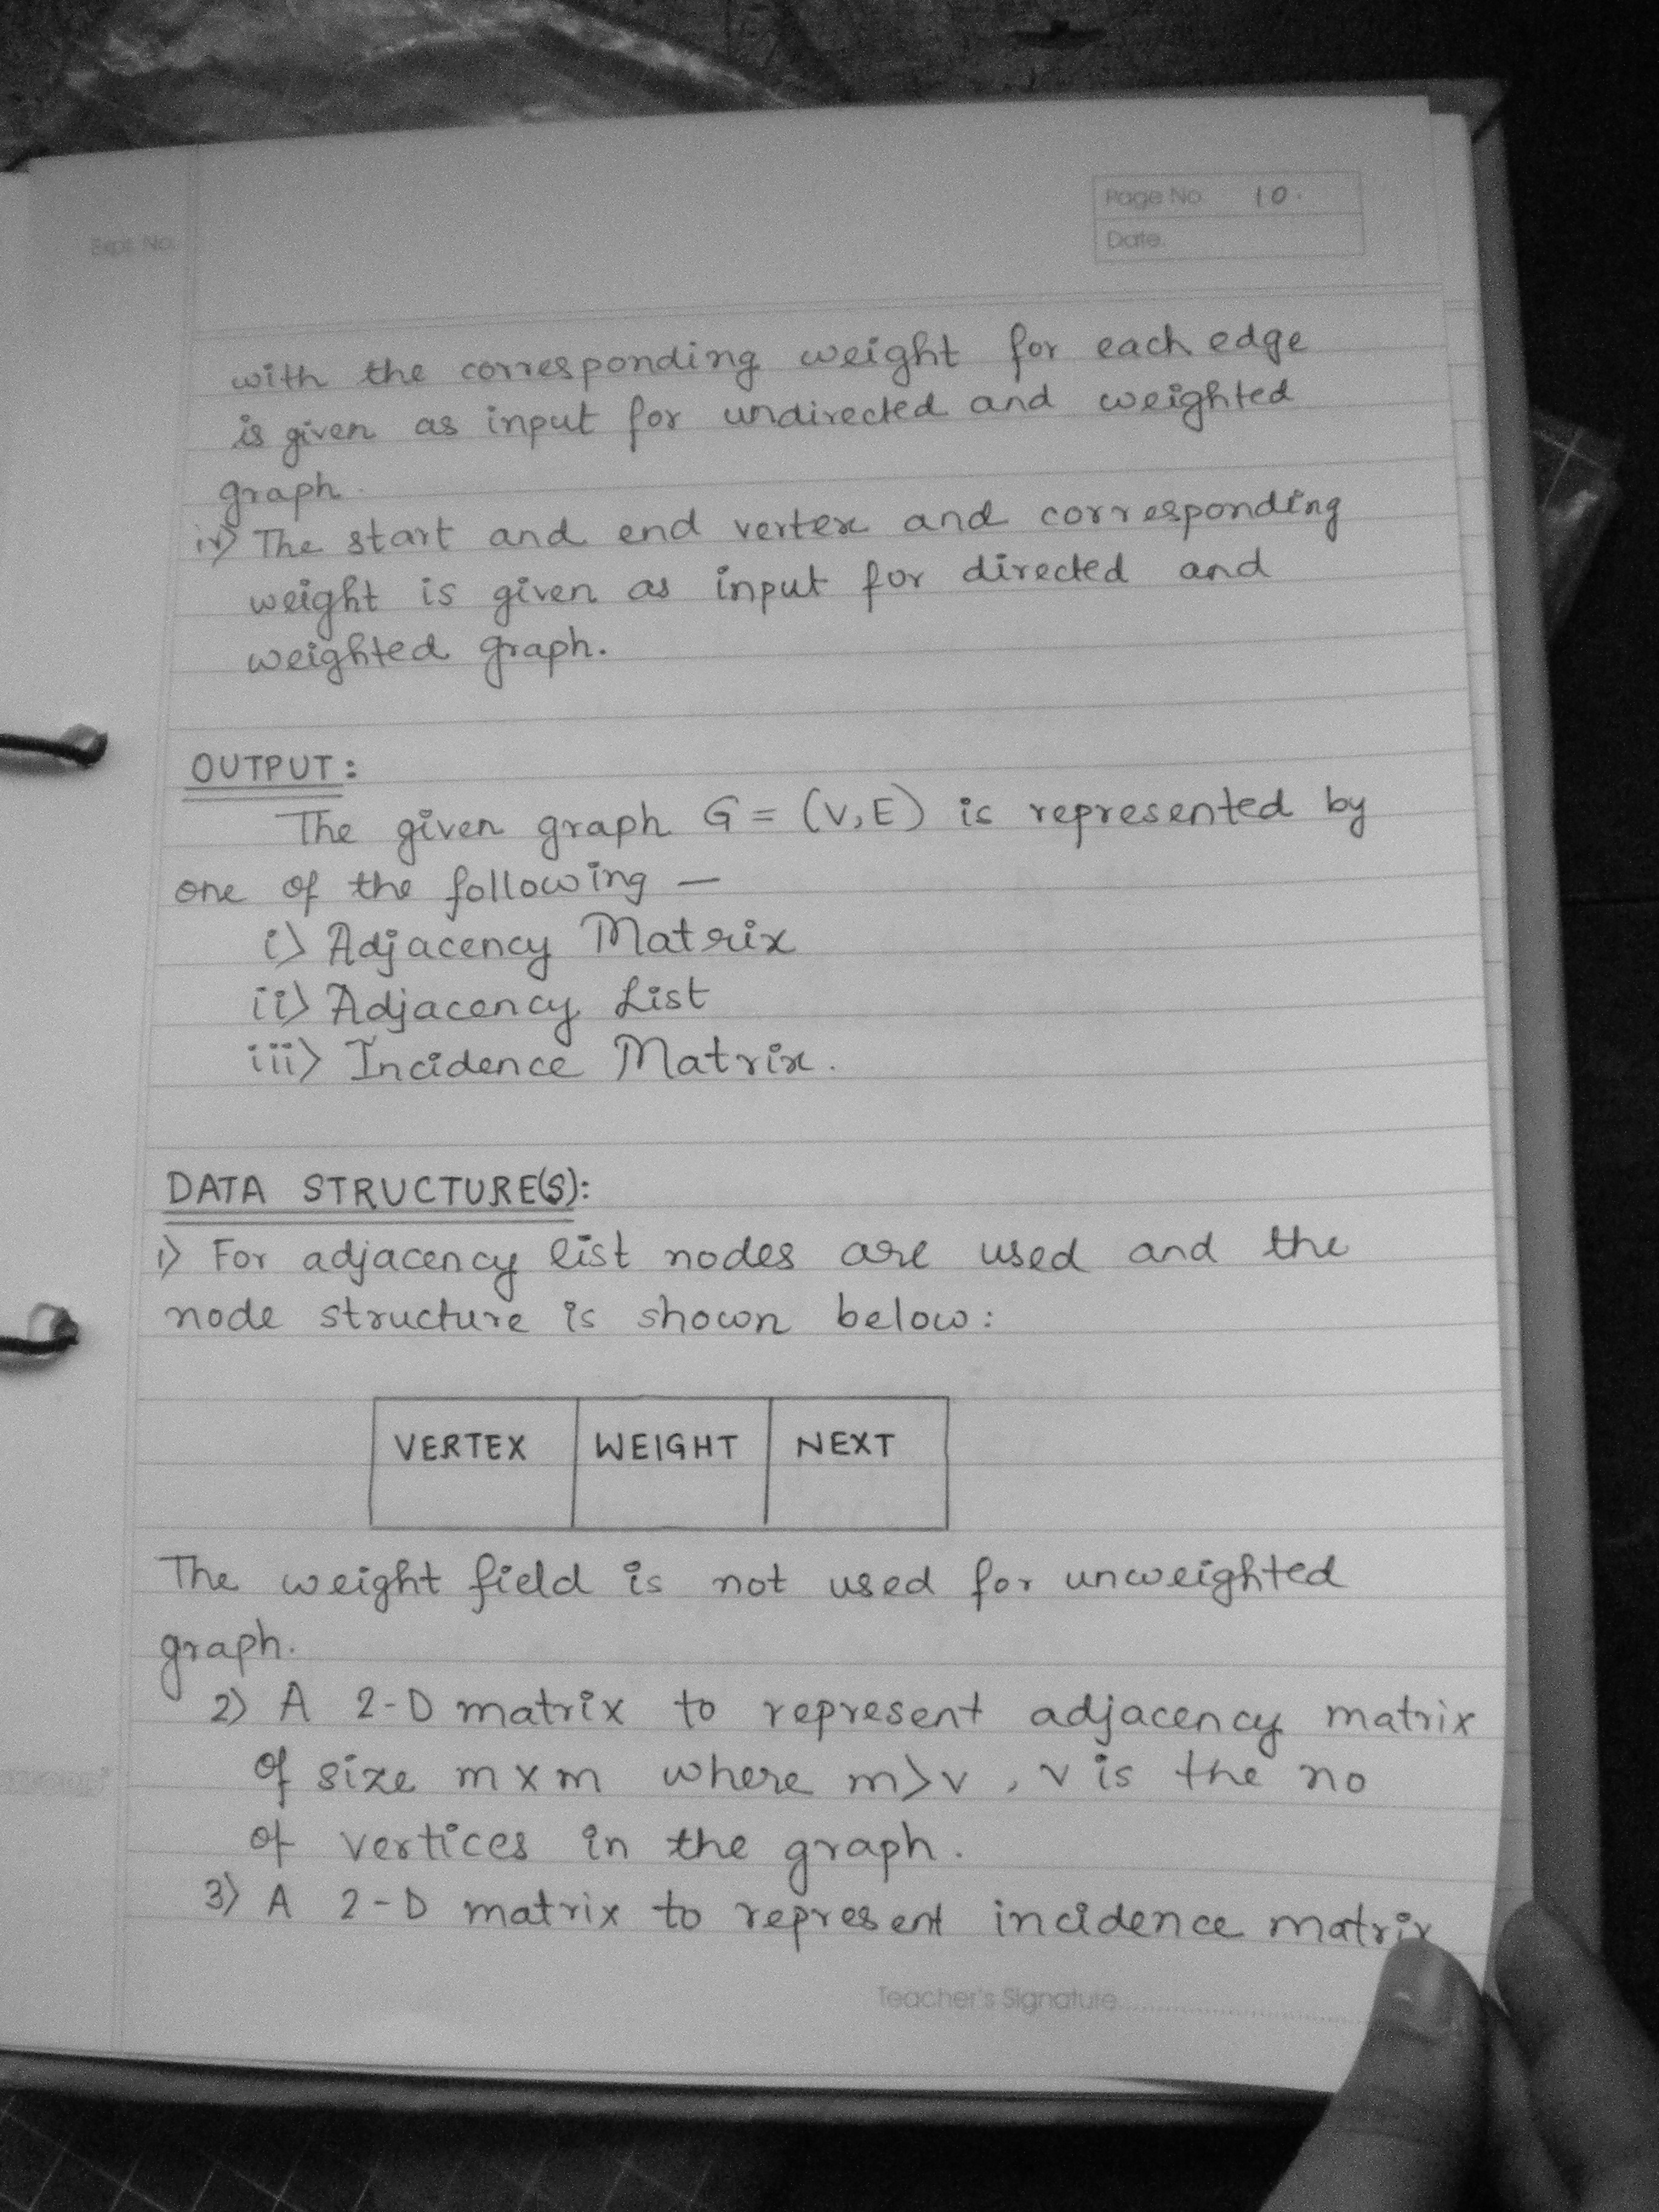 Expt. No.
Page No. 10.
Date.
with the corresponding weight for each edge
is given as input for undirected and weighted
graph.
iv) The start and end vertex and corresponding
weight is given as input for directed and
weighted graph.
OUTPUT:
The given graph G = (V,E) is represented by
one of the following —
i) Adjacency Matrix
ii) Adjacency List
iii) Incidence Matrix.
DATA STRUCTURE(S):
1) For adjacency list nodes are used and the
node structure is shown below:
VERTEX WEIGHT NEXT
The weight field is not used for unweighted
graph.
2) A 2-D matrix to represent adjacency matrix
of size m x m where m>v, v is the no
of vertices in the graph.
3) A 2-D matrix to represent incidence matrix
Teacher's Signature